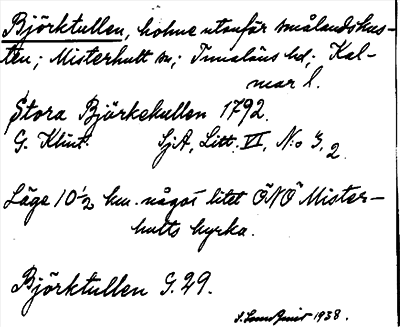 Björktullen, holme utanför smålandskus-
ten; Misterhult sn; Tunaläns hd; Kal-
mar l.
Stora Björkekullen 1792.
G. Klint. SjA, Litt. VI, N:o
Läge 10 1/2 km. något litet ÖNÖ Mister-
hults kyrka.
Björktullen G. 29.
1938.